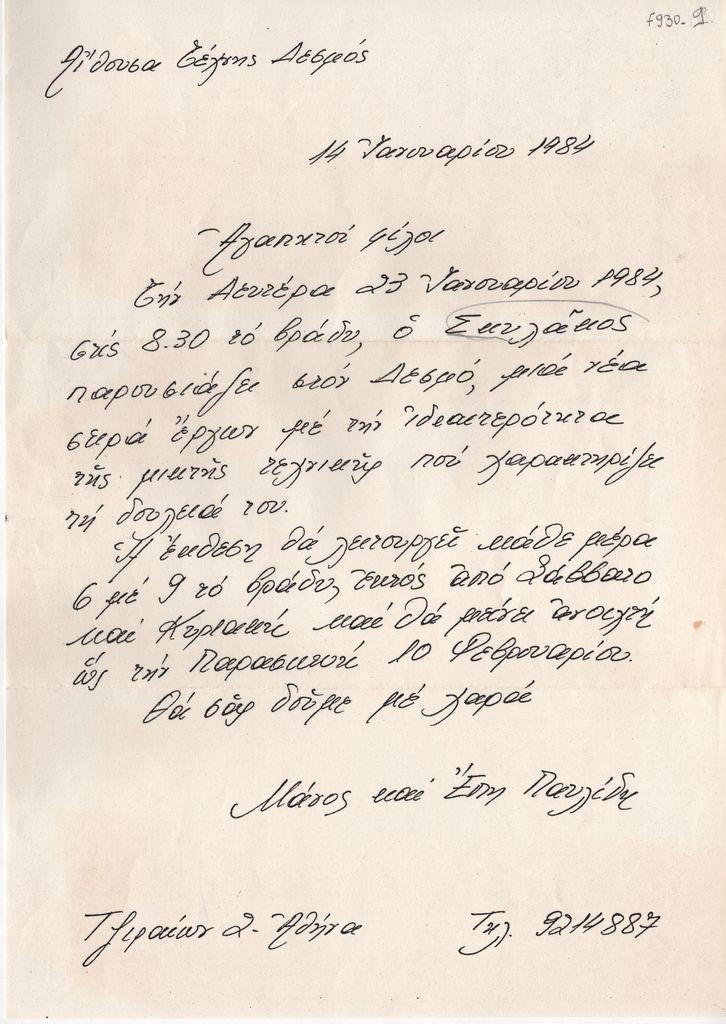 f930-9
Αἴθουσα Τέχνης Δεσμός
14 Ἰανουαρίου 1984
Ἀγαπητοί φίλοι
Τήν Δευτέρα 23 Ἰανουαρίου 1984,
στίς 8.30 τό βράδυ, ὁ Σκυλάκος
παρουσιάζει στόν Δεσμό, μιά νέα
σειρά ἔργων μέ τήν ἰδιαιτερότητα
τῆς μικτῆς τεχνικῆς πού χαρακτηρίζει
τή δουλειά του.
Ἡ ἔκθεση θά λειτουργεῖ κάθε μέρα
6 μέ 9 τό βράδυ, ἐκτός ἀπό Σάββατο
καί Κυριακή καί θά μείνει ἀνοιχτή
ὥς τήν Παρασκευή 10 Φεβρουαρίου.
Θά σᾶς δοῦμε μέ χαρά
Μάνος καί Ἔπη Παυλίδη
Τζιραίων 2 - Ἀθήνα Τηλ. 9214887